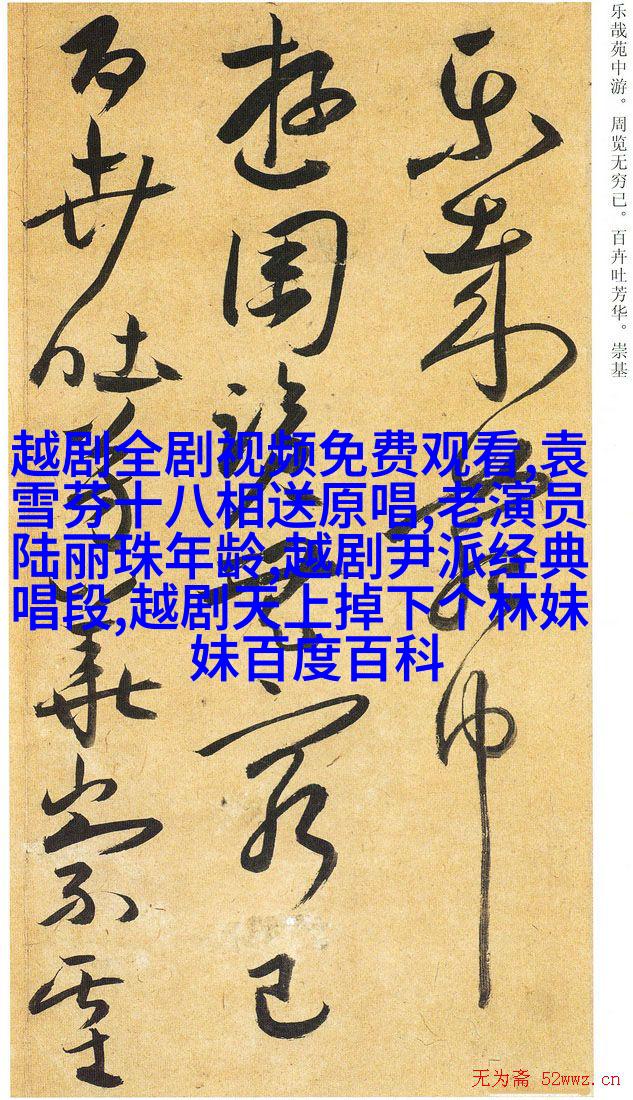 乐哉苑中游。周览无穷已。百卉吐芳华。崇基
樂哉苑中
遊周覽无窮已
百卉吐芳華崇基
越剧全剧视频免费观看,袁
雪芬十八相送原唱,老演员
陆丽珠年龄,越剧尹派经典
唱段,越剧天上掉下个林妹
妹百度百科
无为斋 52wwz.cn